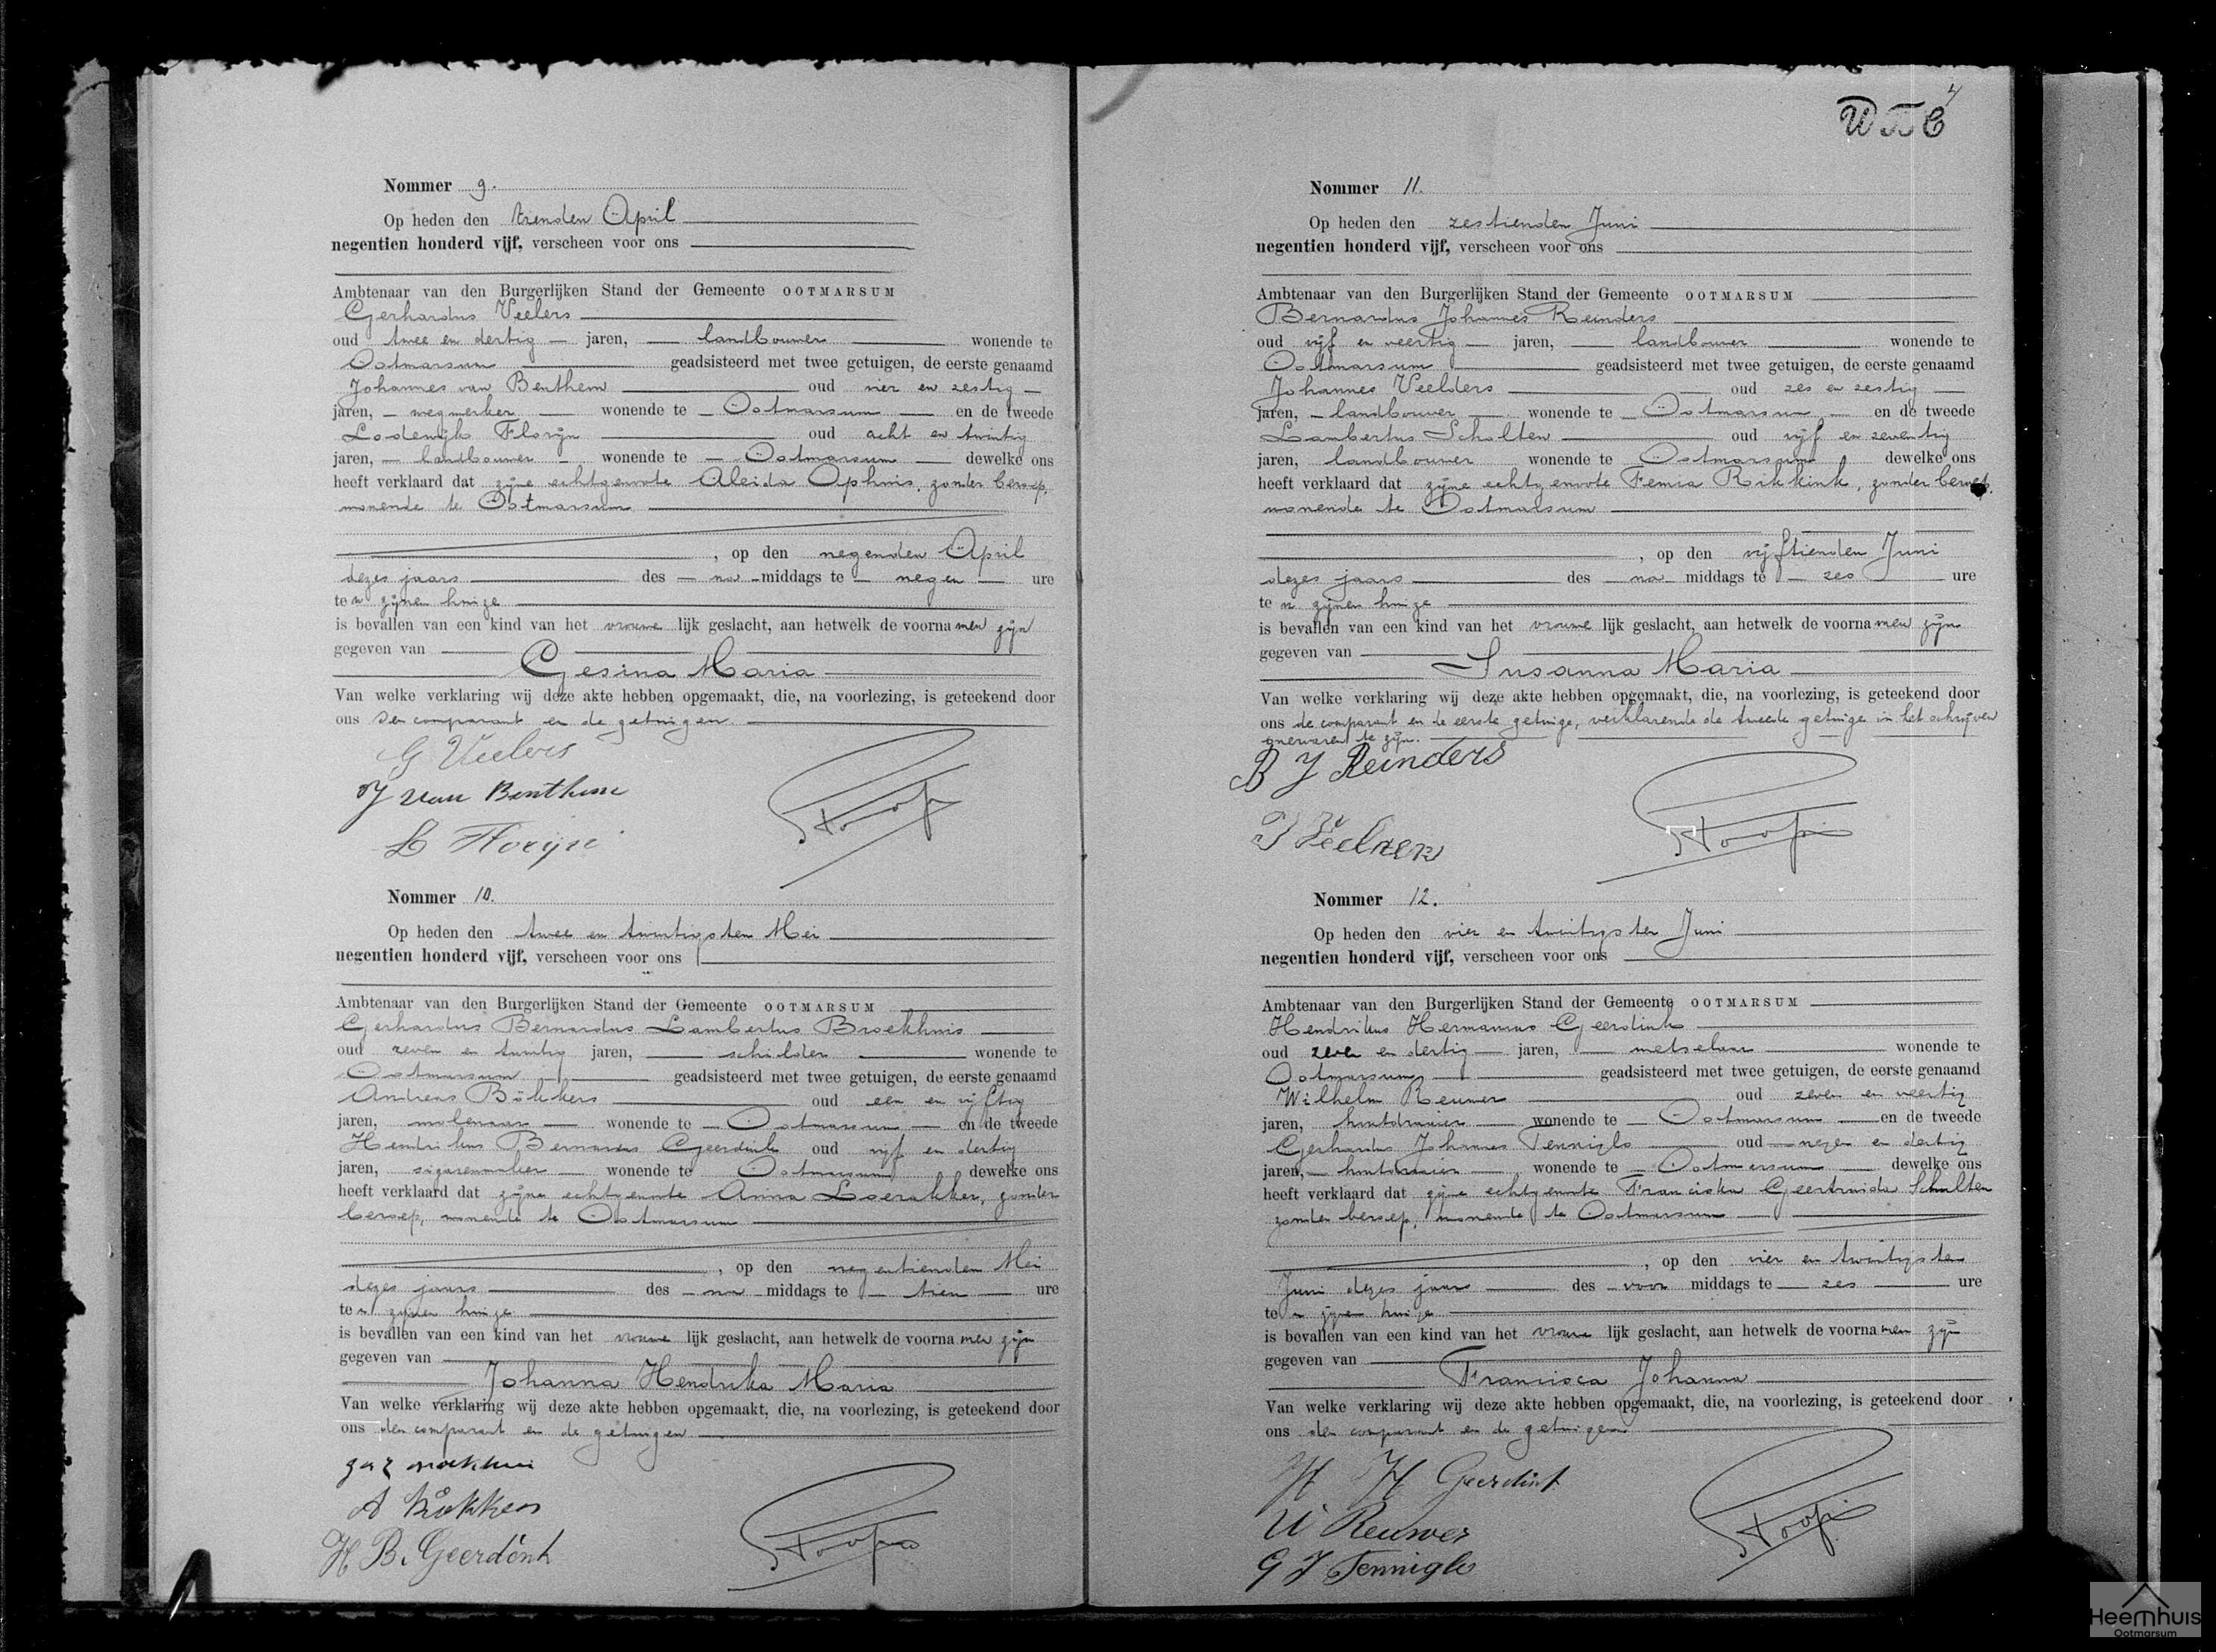 Nommer 9.
Op heden den tienden April
negentien honderd vijf, verscheen voor ons
Ambtenaar van den Burgerlijken Stand der Gemeente OOTMARSUM
Gerhardus Veelers
oud twee en dertig jaren, landbouwer wonende te
Ootmarsum geadsisteerd met twee getuigen, de eerste genaamd
Johannes van Benthem oud vier en zestig
jaren, wegwerker wonende te Ootmarsum en de tweede
Lodewijk Florijn oud acht en twintig
jaren, landbouwer wonende te Ootmarsum dewelke ons
heeft verklaard dat zijne echtgenoote Aleida Ophuis, zonder beroep,
wonende te Ootmarsum
, op den negenden April
dezes jaars des na middags te negen ure
te n zijnen huize
is bevallen van een kind van het vrouwe lijk geslacht, aan hetwelk de voorna men zijn
gegeven van
Gesina Maria
Van welke verklaring wij deze akte hebben opgemaakt, die, na voorlezing, is geteekend door
ons den comparant en de getuigen.
G Veelers
J van Benthem
L Florijn
Nommer 10.
Op heden den twee en twintigsten Mei
negentien honderd vijf, verscheen voor ons
Ambtenaar van den Burgerlijken Stand der Gemeente OOTMARSUM
Gerhardus Bernardus Lambertus Broekhuis
oud zeven en twintig jaren, schilder wonende te
Ootmarsum geadsisteerd met twee getuigen, de eerste genaamd
Andreas Bökkers oud een en vijftig
jaren, molenaar wonende te Ootmarsum en de tweede
Hendrikus Bernardus Geerdink oud vijf en dertig
jaren, sigarenmaker wonende te Ootmarsum dewelke ons
heeft verklaard dat zijne echtgenoote Anna Loerakker, zonder
beroep, wonende te Ootmarsum
, op den negentienden Mei
dezes jaars des na middags te tien ure
te n zijnen huize
is bevallen van een kind van het vrouwe lijk geslacht, aan hetwelk de voorna men zijn
gegeven van
Johanna Hendrika Maria
Van welke verklaring wij deze akte hebben opgemaakt, die, na voorlezing, is geteekend door
ons den comparant en de getuigen
A Bökkers
H B. Geerdink
4
Nommer 11.
Op heden den zestienden Juni
negentien honderd vijf, verscheen voor ons
Ambtenaar van den Burgerlijken Stand der Gemeente OOTMARSUM
Bernardus Johannes Reinders
oud vijf en veertig jaren, landbouwer wonende te
Ootmarsum geadsisteerd met twee getuigen, de eerste genaamd
Johannes Veelders oud zes en zestig
jaren, landbouwer wonende te Ootmarsum en de tweede
Lambertus Scholten oud vijf en zeventig
jaren, landbouwer wonende te Ootmarsum dewelke ons
heeft verklaard dat zijne echtgenoote Femia Rikkink, zonder beroep,
wonende te Ootmarsum
, op den vijftienden Juni
dezes jaars des na middags te zes ure
te n zijnen huize
is bevallen van een kind van het vrouwe lijk geslacht, aan hetwelk de voorna men zijn
gegeven van
Susanna Maria
Van welke verklaring wij deze akte hebben opgemaakt, die, na voorlezing, is geteekend door
ons de comparant en de eerste getuige, verklarende de tweede getuige in het schrijven
onervaren te zijn.
B J Reinders
Nommer 12.
Op heden den vier en twintigsten Juni
negentien honderd vijf, verscheen voor ons
Ambtenaar van den Burgerlijken Stand der Gemeente OOTMARSUM
Hendrikus Hermannus Geerdink
oud zeven en dertig jaren, metselaar wonende te
Ootmarsum geadsisteerd met twee getuigen, de eerste genaamd
Wilhelm Reuwer oud zeven en veertig
jaren, houtdraaier wonende te Ootmarsum en de tweede
Gerhardus Johannes Tenniglo oud negen en dertig
jaren, houtdraaier wonende te Ootmarsum dewelke ons
heeft verklaard dat zijne echtgenoote Franciska Geertruida Scholten
zonder beroep, wonende te Ootmarsum
, op den vier en twintigsten
Juni dezes jaars des voor middags te zes ure
te n zijnen huize
is bevallen van een kind van het vrouwe lijk geslacht, aan hetwelk de voorna men zijn
gegeven van
Francisca Johanna
Van welke verklaring wij deze akte hebben opgemaakt, die, na voorlezing, is geteekend door
ons den comparant en de getuigen
H H Geerdink
W Reuwer
G J Tenniglo
Heemhuis
Ootmarsum